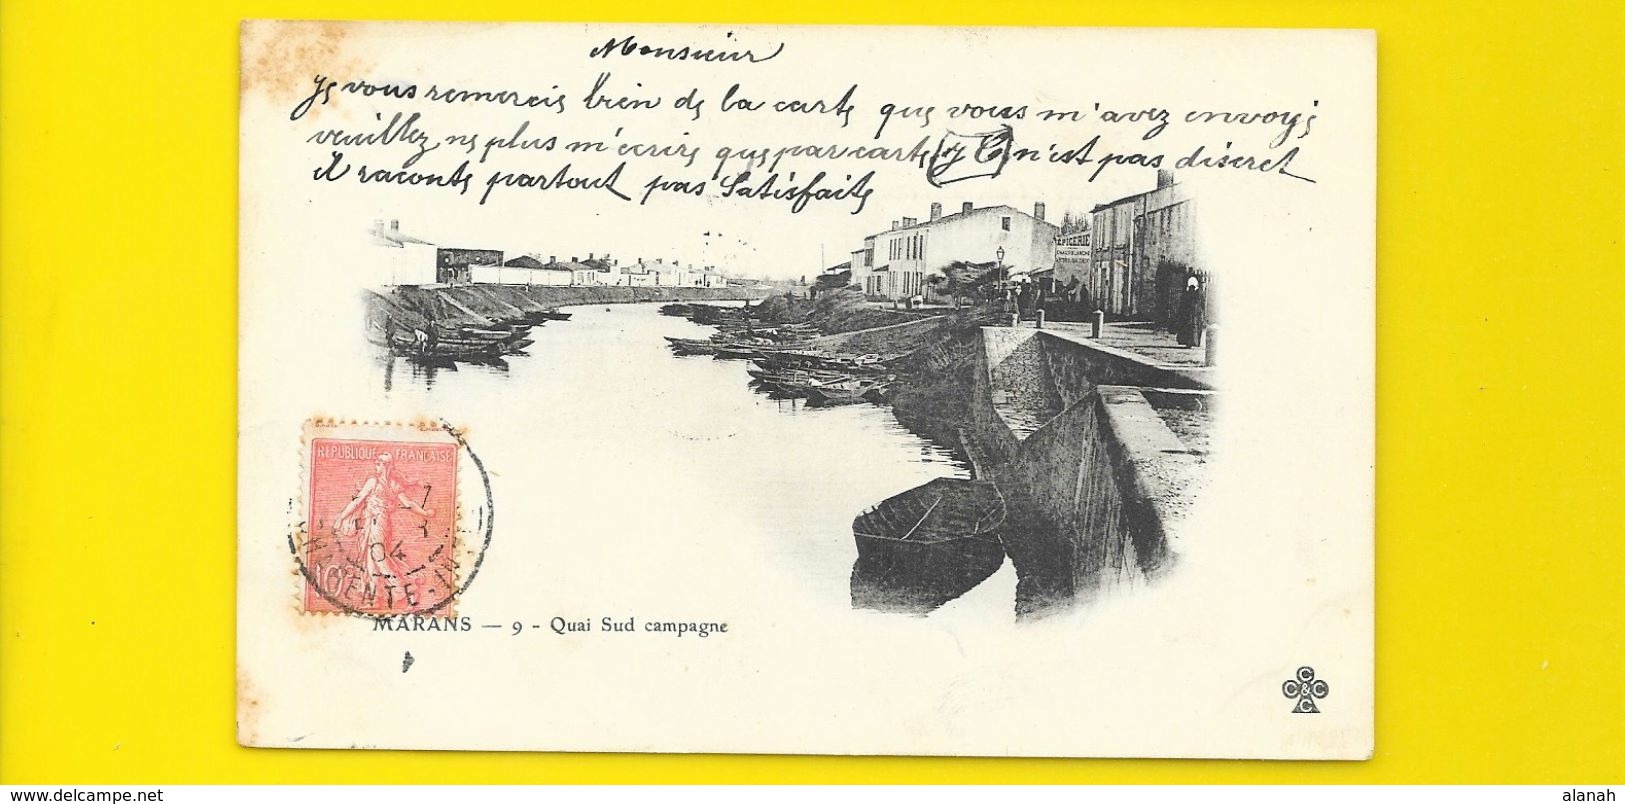 Monsieur
Je vous remercie bien de la carte que vous m'avez envoyé
veuillez ne plus m'écrire que par carte, n'est pas discret
il raconte partout pas Satisfaite
ÉPICERIE
REPUBLIQUE FRANÇAISE
10
04
CHARENTE-INF
MARANS — 9 - Quai Sud campagne
C
C & C
C
www.delcampe.net
alanah